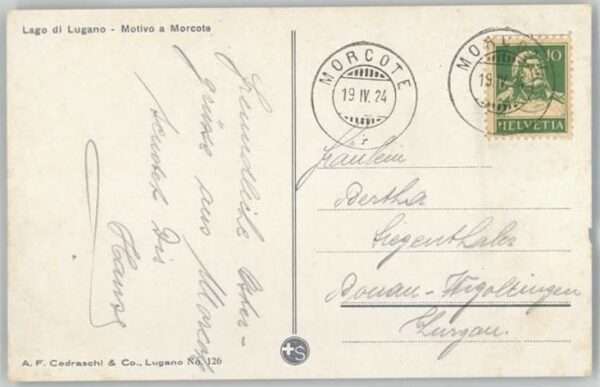 Lago di Lugano - Motivo a Morcote
Freundliche Oster-
grüsse aus Morcote
sendet Dir
Hans
A. F. Cedraschi & Co., Lugano No. 126
MORCOTE
19 IV. 24
MOR
19. IV.
10
HELVETIA
Fräulein
Bertha
Siegenthaler
Bonau-Wigoltingen
Turgau.
+S